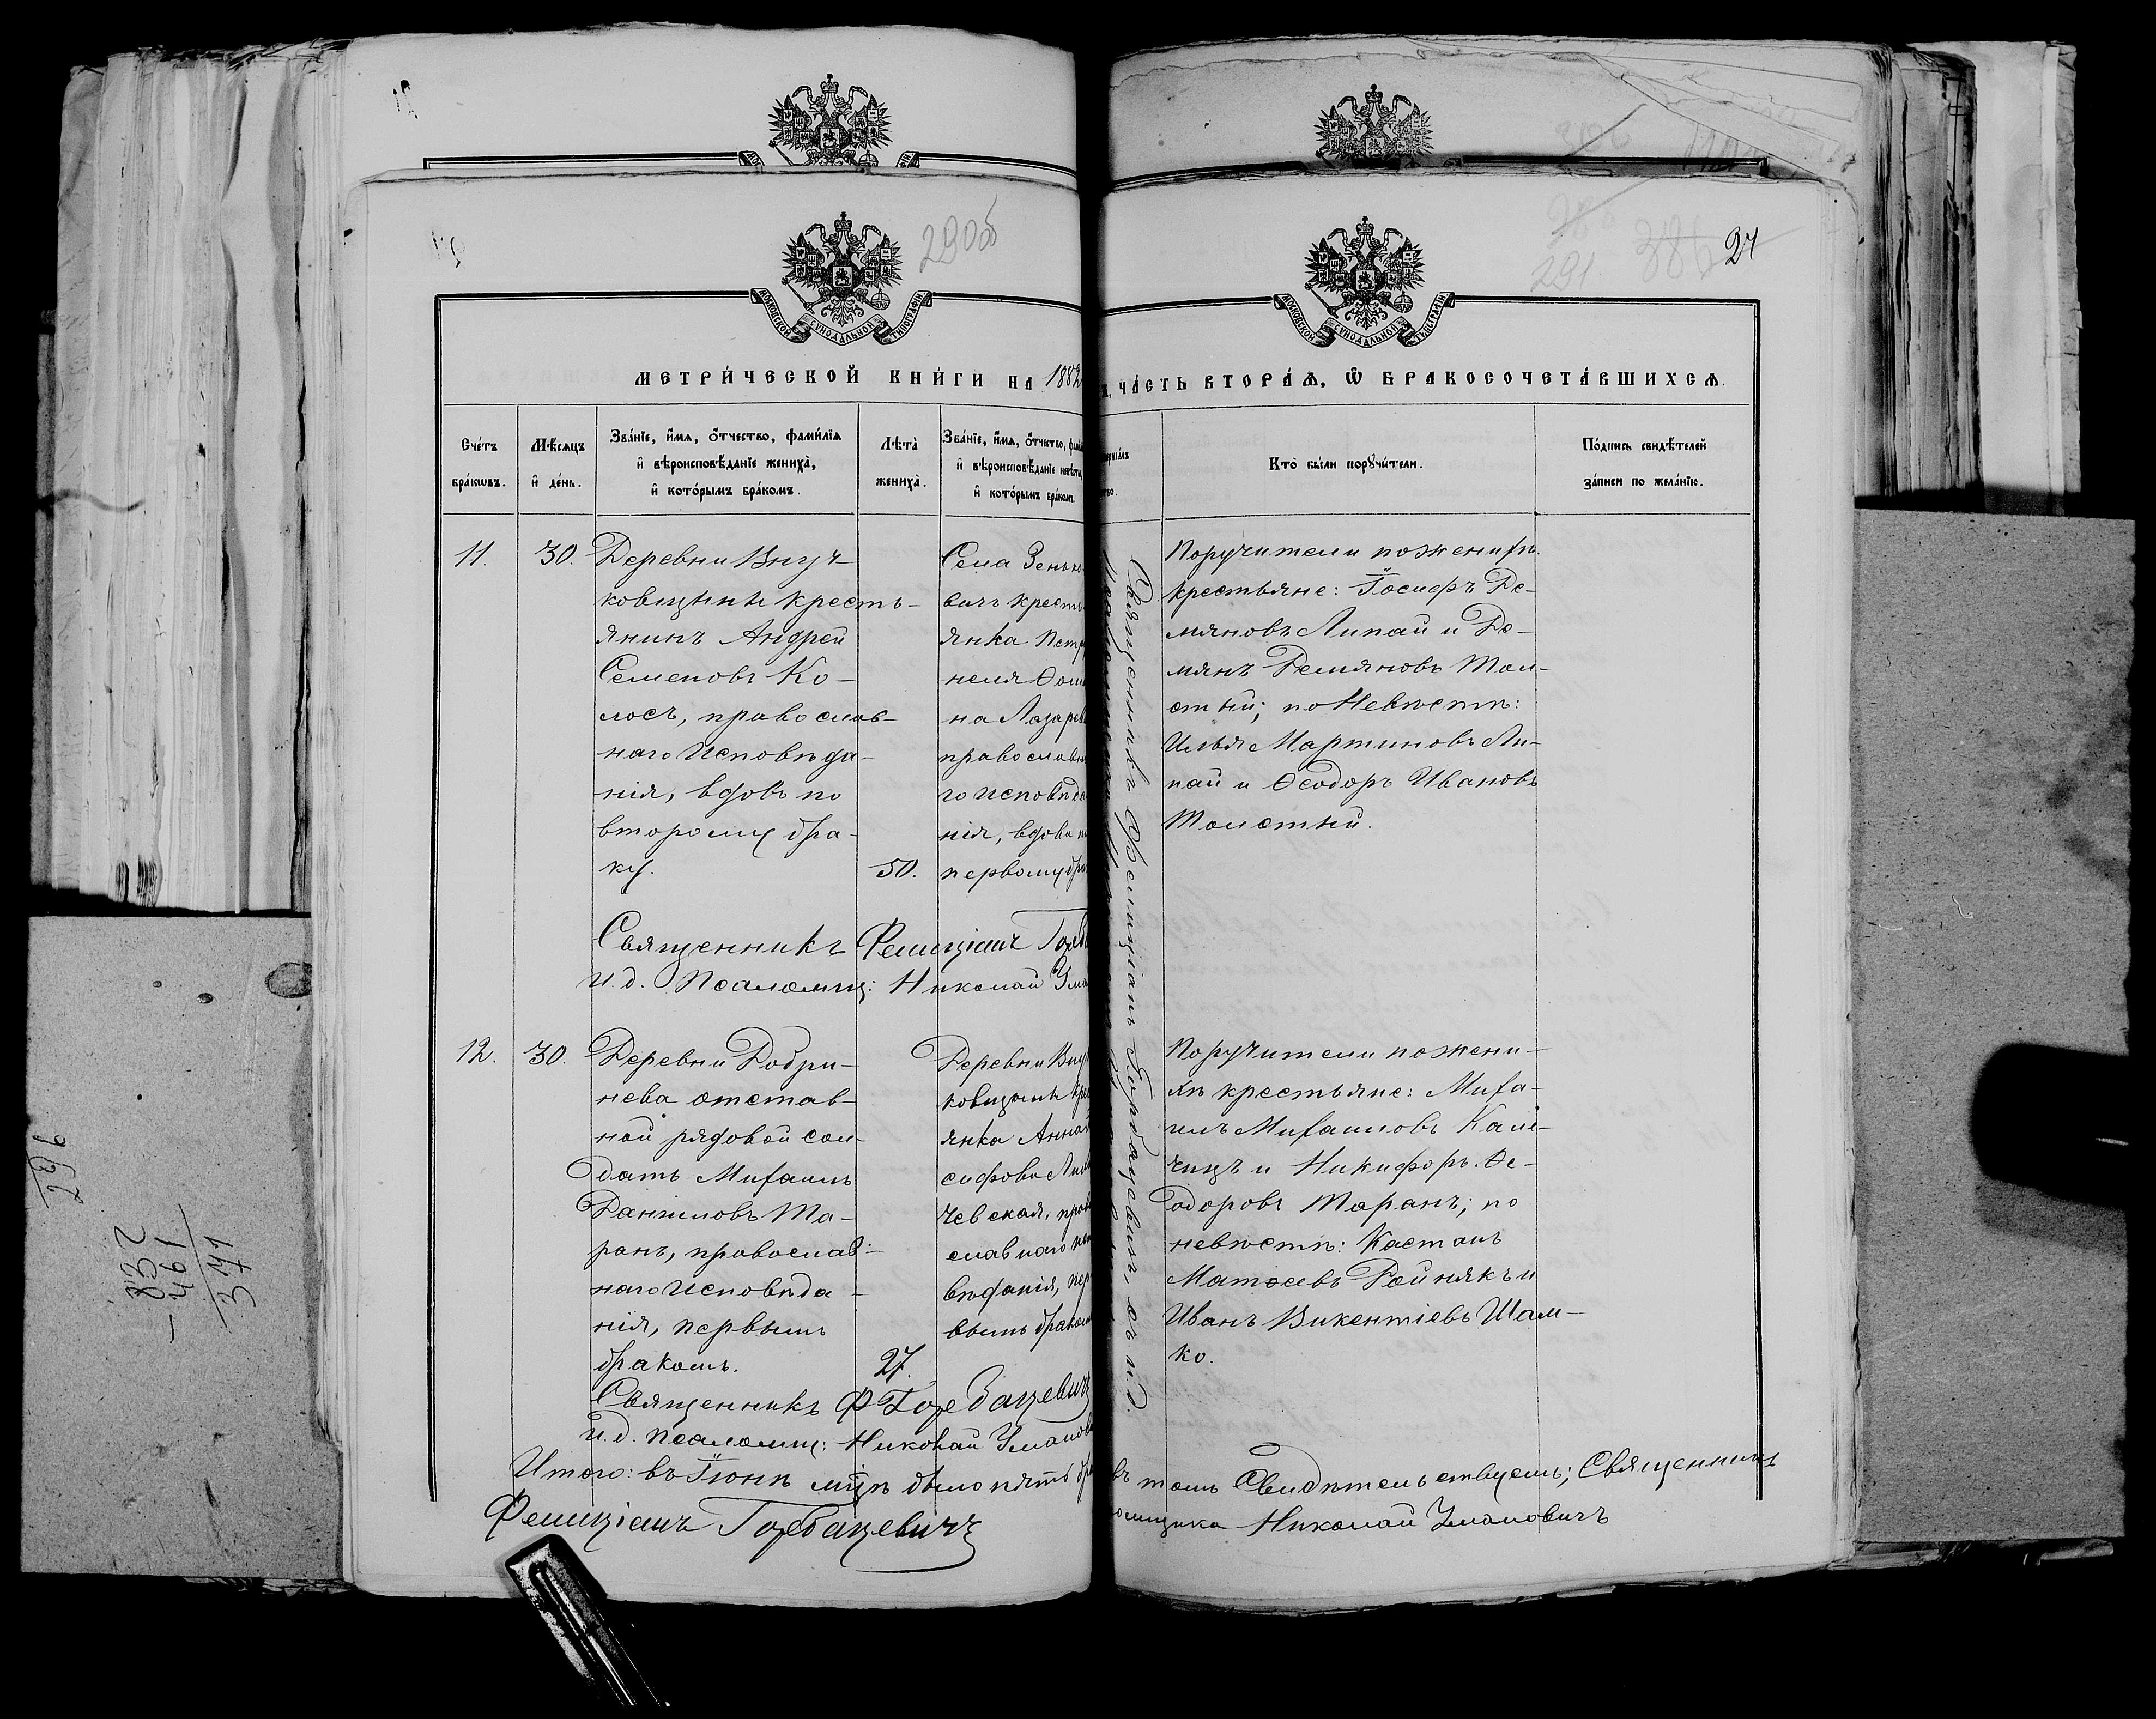 290об
291
386
24
МОСКОВСКОЙ СѴНОДАЛЬНОЙ ТИПОГРАФІИ
МОСКОВСКОЙ СѴНОДАЛЬНОЙ ТИПОГРАФІИ
МЕТРИ́ЧЕСКОЙ КНИ́ГИ НА 1882
ЧА́СТЬ ВТОРА́Ѧ, Ѽ БРАКОСОЧЕТА́ВШИХСѦ.
Сче́тъ
бра́кѡвъ.
Мѣ́сѧцъ
и҆ де́нь.
Зва́нїе, и҆́мѧ, ѻ҆́тчество, фами́лїѧ
и҆ вѣроисповѣ́данїе жениха̀,
и҆ кото́рымъ бра́комъ.
Лѣта̀
жениха̀.
Зва́нїе, и҆́мѧ, ѻ҆́тчество,
и҆ вѣроисповѣ́данїе невѣ́сты,
и҆ кото́рымъ бра́комъ
Кто̀ бы́ли порꙋчи́тели.
По́дпись свидѣ́телей
за́писи по жела́нїю.
11.
30.
Деревни Внуч-
ковщины кресть-
янинъ Андрей
Семеновъ Ко-
лосъ, православ-
наго Исповѣда-
нія, вдовъ по
второму бра-
ку.
50.
Села Зенько
вичъ кресть
янка Петр
неля Ѳом
на Лазарев
православн
го исповѣда
нія, вдова по
первому бра
Поручители по женихѣ
крестьяне: Іосифъ Де-
мяновъ Липай и Де-
мянъ Демяновъ Тол-
стый; по Невѣстѣ:
Илья Мартиновъ Ли-
пай и Ѳеодоръ Ивановъ
Толстый.
Священникъ Фелиціанъ Горб
И. д. Псаломщ: Николай Ума
12.
30.
Деревни Добри-
нева отстав-
ной рядовой сол-
датъ Михаилъ
Даниловъ Та-
ранъ, православ-
наго Исповѣда-
нія, первымъ
бракомъ.
27.
Деревни Внуч
ковщины кре
янка Анна
сифова
чевская, право
славнаго
вѣданія, пер
вымъ бракомъ
Поручители по жени-
хѣ крестьяне: Миха-
илъ Михаиловъ Калі-
чицъ и Никифоръ Ѳе-
одоровъ Таранъ; по
невѣстѣ: Кастанъ
Матѳеевъ Ройнякъ и
Иванъ Викентіевъ Шам-
ко.
Священникъ Ф Горбацевичъ
И. д. Псаломщ: Николай Уманов
Священникъ Фелиціанъ Горбацевичъ, съ и. д.
Итого: въ Іюнѣ мцѣ было пять бра
въ томъ Свидѣтельствуемъ; Священникъ
Фелиціанъ Горбацевичъ
омщика Николай Умановичъ
296
832
- 461
371